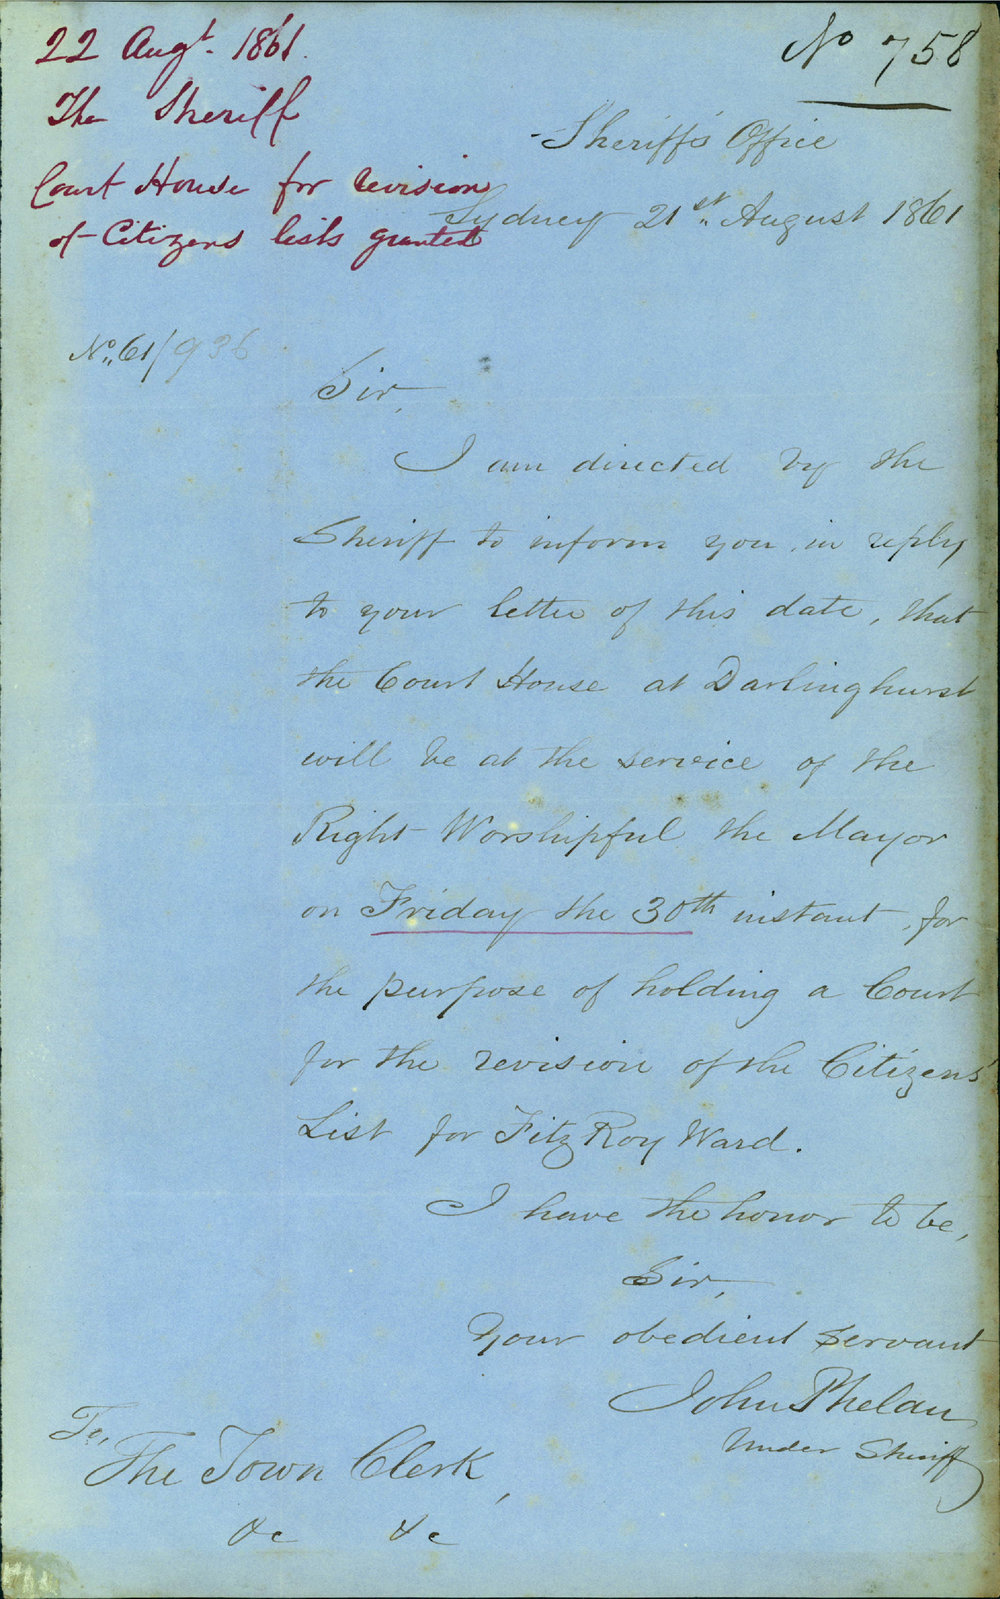 22 Augt. 1861.
The Sheriff
Court House for revision
of Citizens lists granted
No 758
Sheriff's Office
Sydney 21st August 1861
No. 61/936
Sir,
I am directed by the
Sheriff to inform you, in reply
to your letter of this date, that
the Court House at Darlinghurst
will be at the service of the
Right Worshipful the Mayor
on Friday the 30th instant, for
the purpose of holding a Court
for the revision of the Citizens'
List for FitzRoy Ward.
I have the honor to be,
Sir,
Your obedient Servant
John Phelan
Under Sheriff
To,
The Town Clerk,
&c &c